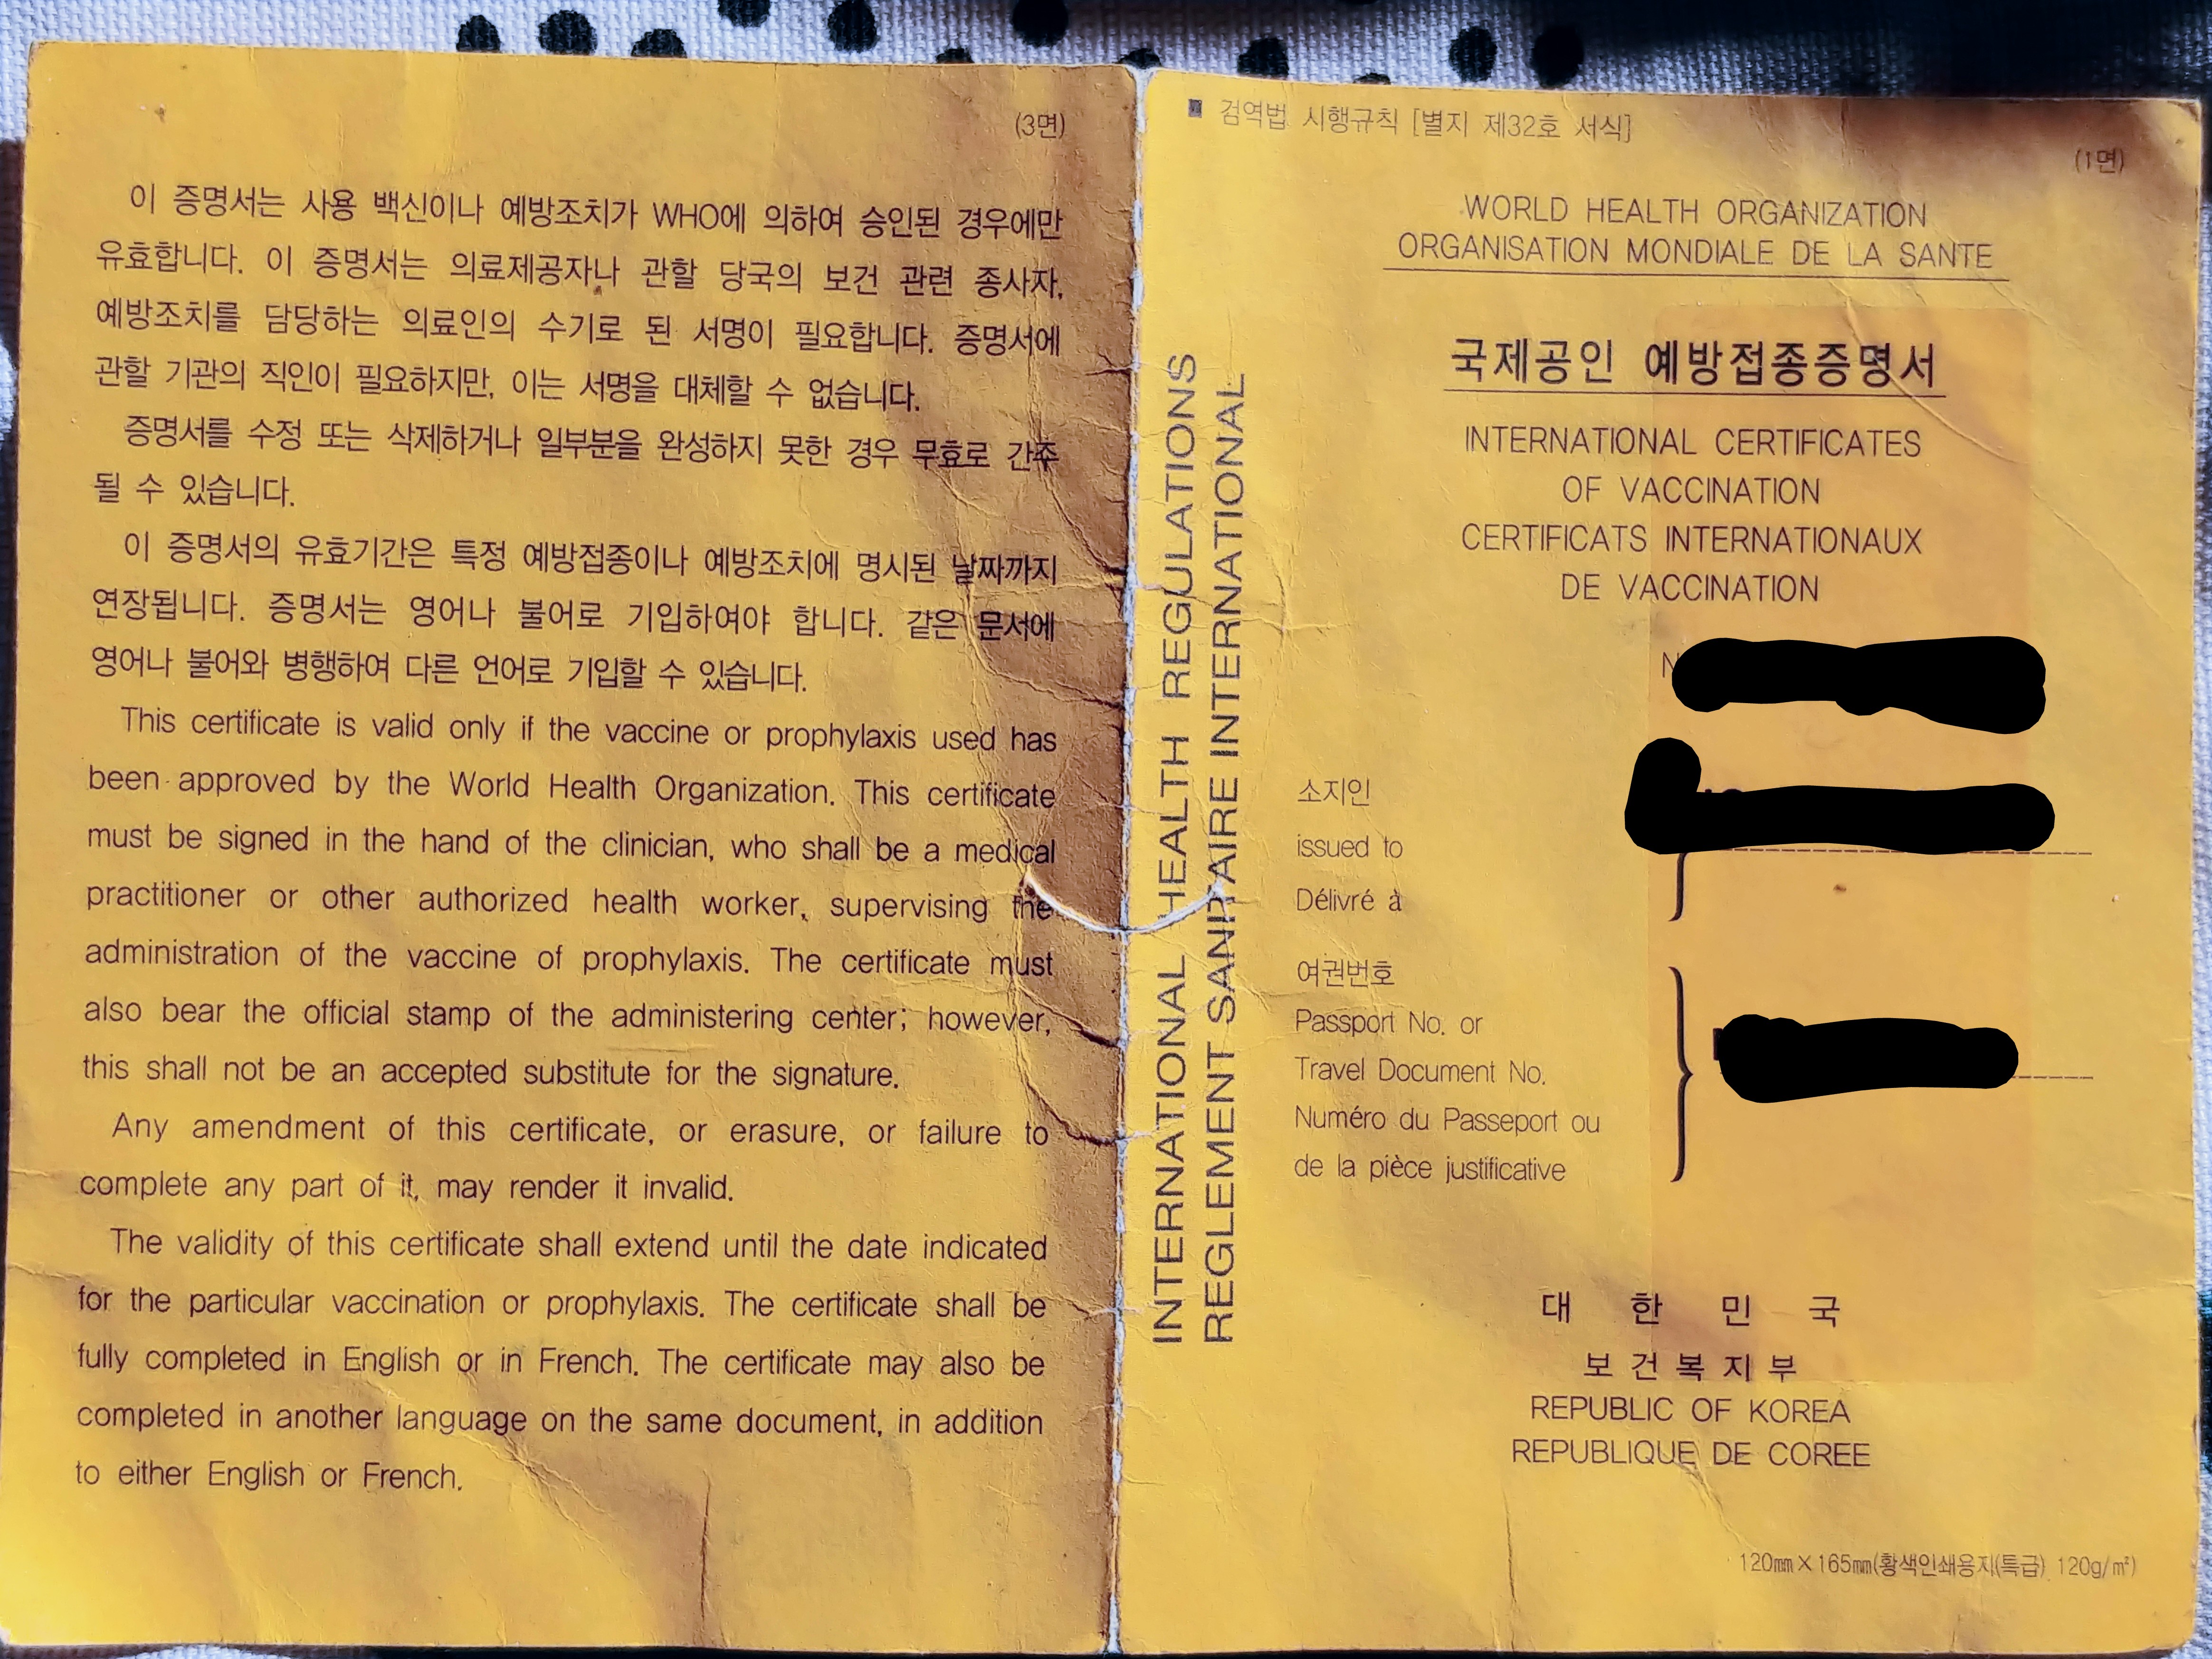 (3면)
이 증명서는 사용 백신이나 예방조치가 WHO에 의하여 승인된 경우에만
유효합니다. 이 증명서는 의료제공자나 관할 당국의 보건 관련 종사자,
예방조치를 담당하는 의료인의 수기로 된 서명이 필요합니다. 증명서에
관할 기관의 직인이 필요하지만, 이는 서명을 대체할 수 없습니다.
증명서를 수정 또는 삭제하거나 일부분을 완성하지 못한 경우 무효로 간주
될 수 있습니다.
이 증명서의 유효기간은 특정 예방접종이나 예방조치에 명시된 날짜까지
연장됩니다. 증명서는 영어나 불어로 기입하여야 합니다. 같은 문서에
영어나 불어와 병행하여 다른 언어로 기입할 수 있습니다.
This certificate is valid only if the vaccine or prophylaxis used has
been approved by the World Health Organization. This certificate
must be signed in the hand of the clinician, who shall be a medical
practitioner or other authorized health worker, supervising the
administration of the vaccine of prophylaxis. The certificate must
also bear the official stamp of the administering center; however,
this shall not be an accepted substitute for the signature.
Any amendment of this certificate, or erasure, or failure to
complete any part of it, may render it invalid.
The validity of this certificate shall extend until the date indicated
for the particular vaccination or prophylaxis. The certificate shall be
fully completed in English or in French. The certificate may also be
completed in another language on the same document, in addition
to either English or French.
INTERNATIONAL HEALTH REGULATIONS
REGLEMENT SANITAIRE INTERNATIONAL
■ 검역법 시행규칙 [별지 제32호 서식]
(1면)
WORLD HEALTH ORGANIZATION
ORGANISATION MONDIALE DE LA SANTE
국제공인 예방접종증명서
INTERNATIONAL CERTIFICATES
OF VACCINATION
CERTIFICATS INTERNATIONAUX
DE VACCINATION
소지인
issued to
Délivré à
여권번호
Passport No. or
Travel Document No.
Numéro du Passeport ou
de la pièce justificative
대 한 민 국
보건복지부
REPUBLIC OF KOREA
REPUBLIQUE DE COREE
120㎜×165㎜(황색인쇄용지(특급) 120g/㎡)